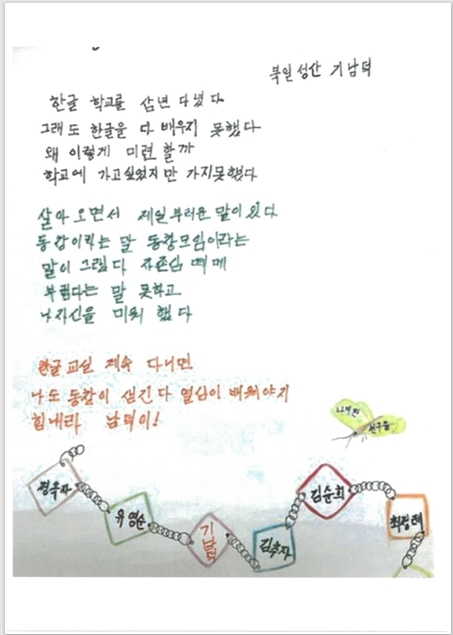 북일 성산 기남덕
한글 학교를 삼년 다녔다
그래도 한글을 다 배우지 못했다
왜 이렇게 미련할까
학교에 가고싶었지만 가지못했다
살아오면서 제일부러운 말이있다
동창이라는 말 동창모임이라는
말이 그렇다 자존심 때메
부럽다는 말 못하고
나자신을 미워 했다
한글교실 계속 다니면
나도 동창이 생긴다 열심이 배워야지
힘내라 남덕이!
나의 친구들
정옥자
유영순
기남덕
김춘자
김순희
최정례